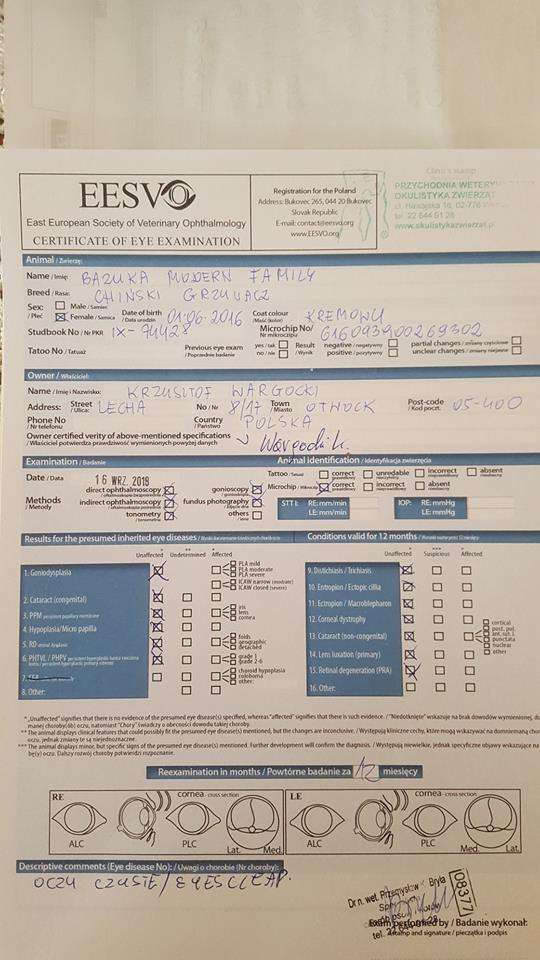 EESVO
East European Society of Veterinary Ophthalmology
CERTIFICATE OF EYE EXAMINATION
Registration for the Poland
Address: Bukovec 265, 044 20 Bukovec
Slovak Republic
E-mail: contact@eesvo.org
www.EESVO.org
Clinic's stamp
PRZYCHODNIA WETERY
OKULISTYKA ZWIERZĄT
02-776
tel. 22 644 01 28
www.okulistykazwierzat.pl
Animal / Zwierzę:
Name / Imię: BAZUKA MODERN FAMILY
Breed / Rasa: CHIŃSKI GRZYWACZ
Sex: / Płeć Male / Samiec
Female / Samica Date of birth / Data urodzin 01.06.2016 Coat colour / Maść (kolor) KREMOWY
Studbook No / Nr PKR IX-74428 Microchip No/ Nr mikroczipu 616093900269302
Tatoo No / Tatuaż Previous eye exam / Poprzednie badanie yes / tak no / nie Result / Wynik negative / negatywny positive / pozytywny partial changes / zmiany częściowe unclear changes / zmiany niejasne
Owner / Właściciel:
Name / Imię i Nazwisko: KRZYSZTOF WARGOCKI
Address: Street / Ulica: LECHA No / Nr 8/17 Town / Miasto OTWOCK Post-code / Kod poczt. 05-400
Phone No / Nr telefonu Country / Państwo POLSKA
Owner certified verity of above-mentioned specifications
/ Właściciel potwierdza prawdziwość wymienionych powyżej danych
Examination / Badanie Animal identification / Identyfikacja zwierzęcia
Date / Data 16 WRZ. 2019
Tattoo / Tatuaż correct unredable incorrect absent
Microchip / Mikroczip correct incorrect absent
Methods / Metody
direct ophthalmoscopy
indirect ophthalmoscopy
tonometry
gonioscopy
fundus photography
others
STT I: RE: mm/min
LE: mm/min
IOP: RE: mmHg
LE: mmHg
Results for the presumed inherited eye diseases /
Unaffected Undetermined Affected
1. Goniodysplasia
PLA mild
PLA moderate
PLA severe
ICAW narrow (moderate)
ICAW closed (severe)
2. Cataract (congenital)
3. PPM persistent pupillary membrane
iris
lens
cornea
4. Hypoplasia / Micro papilla
5. RD retinal dysplasia
folds
geographic
detached
6. PHTVL / PHPV
grade 1
grade 2-6
7.
choroid hypoplasia
coloboma
other:
8. Other:
Conditions valid for 12 months /
Unaffected Suspicious Affected
9. Distichiasis / Trichiasis
10. Entropion / Ectopic cilla
11. Ectropion / Macroblepharon
12. Corneal dystrophy
13. Cataract (non-congenital)
cortical
post. pol.
ant. sut. l.
punctata
nuclear
other
14. Lens luxation (primary)
15. Retinal degeneration (PRA)
16. Other:
* „Unaffected" signifies that there is no evidence of the presumed eye disease(s) specified, whereas "affected" signifies that there is such evidence. / "Niedotknięte" wskazuje na brak dowodów wymienionej, do
manej choroby(ób) oczu, natomiast "Chory" świadczy o obecności dowodu takiej choroby.
** The animal displays clinical features that could possibly fit the presumed eye disease(s) mentioned, but the changes are inconclusive. / Występują kliniczne cechy, które mogą wskazywać na domniemaną cho
oczu, jednak zmiany te są niejednoznaczne.
*** The animal displays minor, but specific signs of the presumed eye disease(s) mentioned. Further development will confirm the diagnosis. / Występują niewielkie, jednak specyficzne objawy wskazujące na
bę(y) oczu. Dalszy rozwój choroby potwierdzi rozpoznanie.
Reexamination in months / Powtórne badanie za 12 miesięcy
RE cornea - cross section LE cornea - cross section
ALC PLC Lat. Med. ALC PLC Med. Lat.
Descriptive comments (Eye disease No): / Uwagi o chorobie (Nr choroby):
OCZY CZYSTE / EYES CLEAR.
Dr n. wet. Przemysław K. Bryła
08377
Exam performed by / Badanie wykonał:
Stamp and signature / pieczątka i podpis